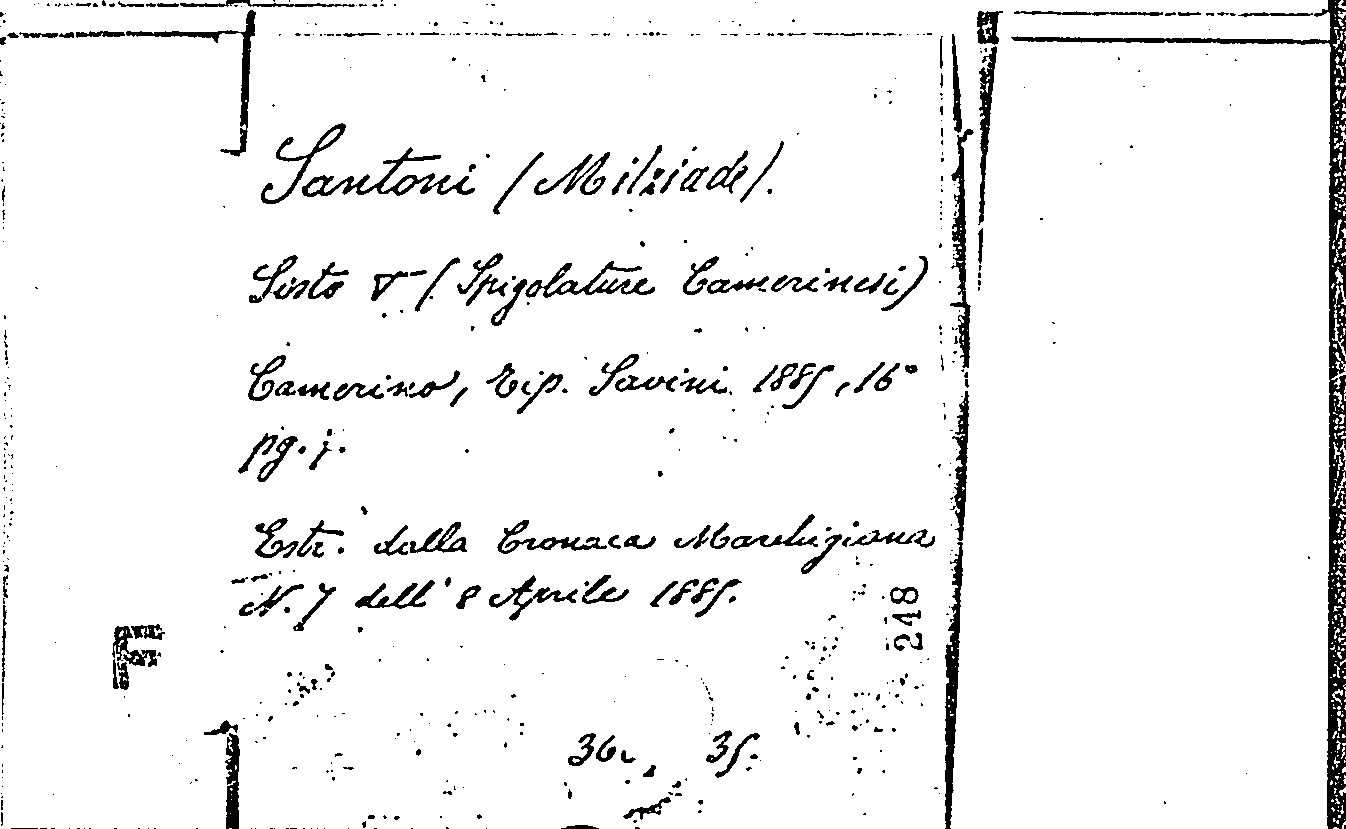 Santoni (Milziade).
Sisto V (Spigolature Camerinesi)
Camerino, Tip. Savini 1885, 16°
pg. j.
Estr. dalla Cronaca Marchigiana
N. 7 dell' 8 Aprile 1885.
248
F
36. 35.